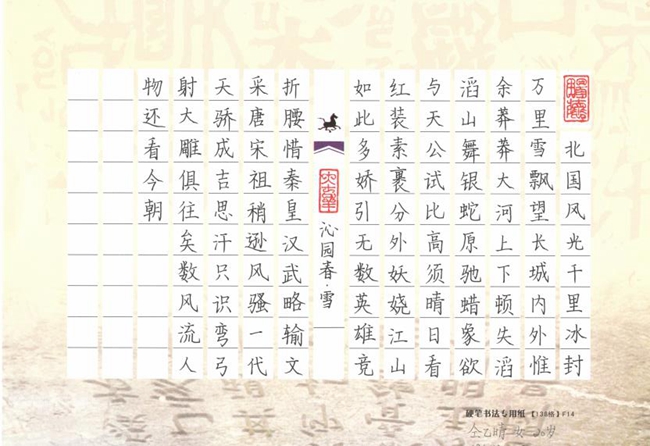 北国风光千里冰封
万里雪飘望长城内外惟
余莽莽大河上下顿失滔
滔山舞银蛇原驰蜡象欲
与天公试比高须晴日看
红装素裹分外妖娆江山
如此多娇引无数英雄竞
沁园春·雪
折腰惜秦皇汉武略输文
采唐宋祖稍逊风骚一代
天骄成吉思汗只识弯弓
射大雕俱往矣数风流人
物还看今朝
硬笔书法专用纸【138格】F14